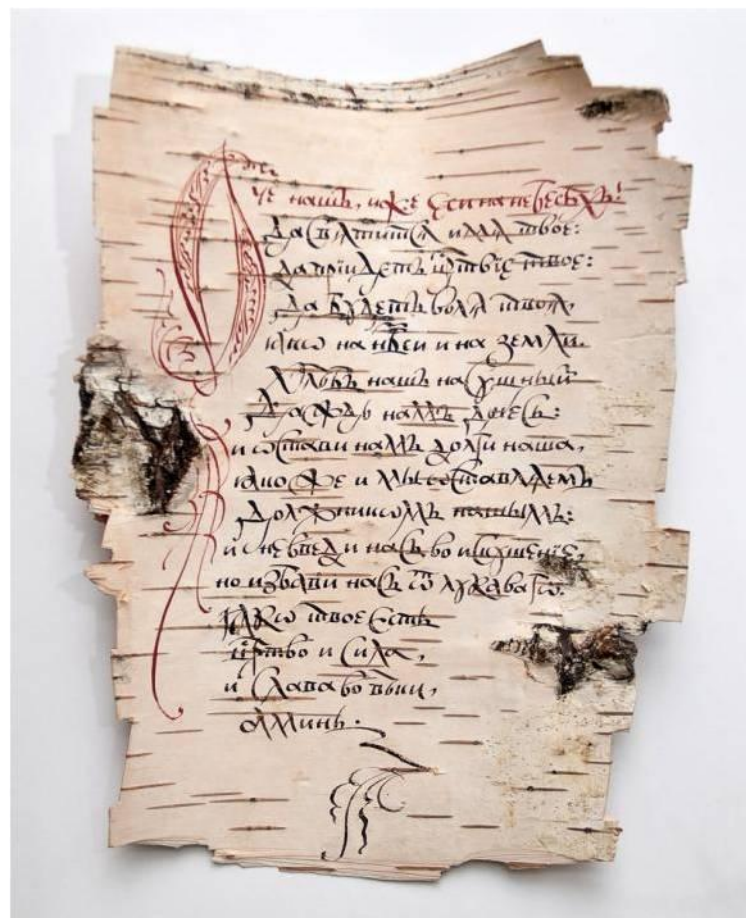 Ѻч҃е нашъ, иже еси на небесѣхъ!
Да свѧтитсѧ имѧ твое:
да прїидетъ цр҃твїе твое:
да будетъ волѧ твоѧ,
ꙗкѡ на нб҃си и на земли.
Хлѣбъ нашъ насущный
даждь намъ днесь:
и ѡстави намъ долги наша,
ꙗкоже и мы оставлѧемъ
должникѡмъ нашымъ:
и не введи насъ во искушенїе,
но избави насъ ѿ лукавагѡ.
ꙗкѡ твое есть
цр҃тво и сила,
и слава во вѣки,
аминь.